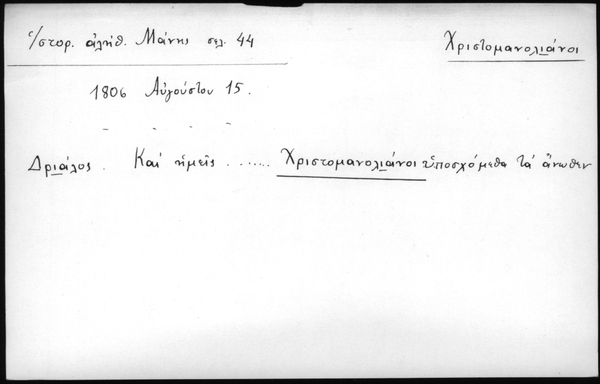 Ἱστορ. ἀλήθ. Μάνης σελ. 44
Χριστομανολιάνοι
1806 Αὐγούστου 15.
Δριάλος. Καὶ ἡμεῖς ....... Χριστομανολιάνοι ὑποσχόμεθα τὰ ἄνωθεν